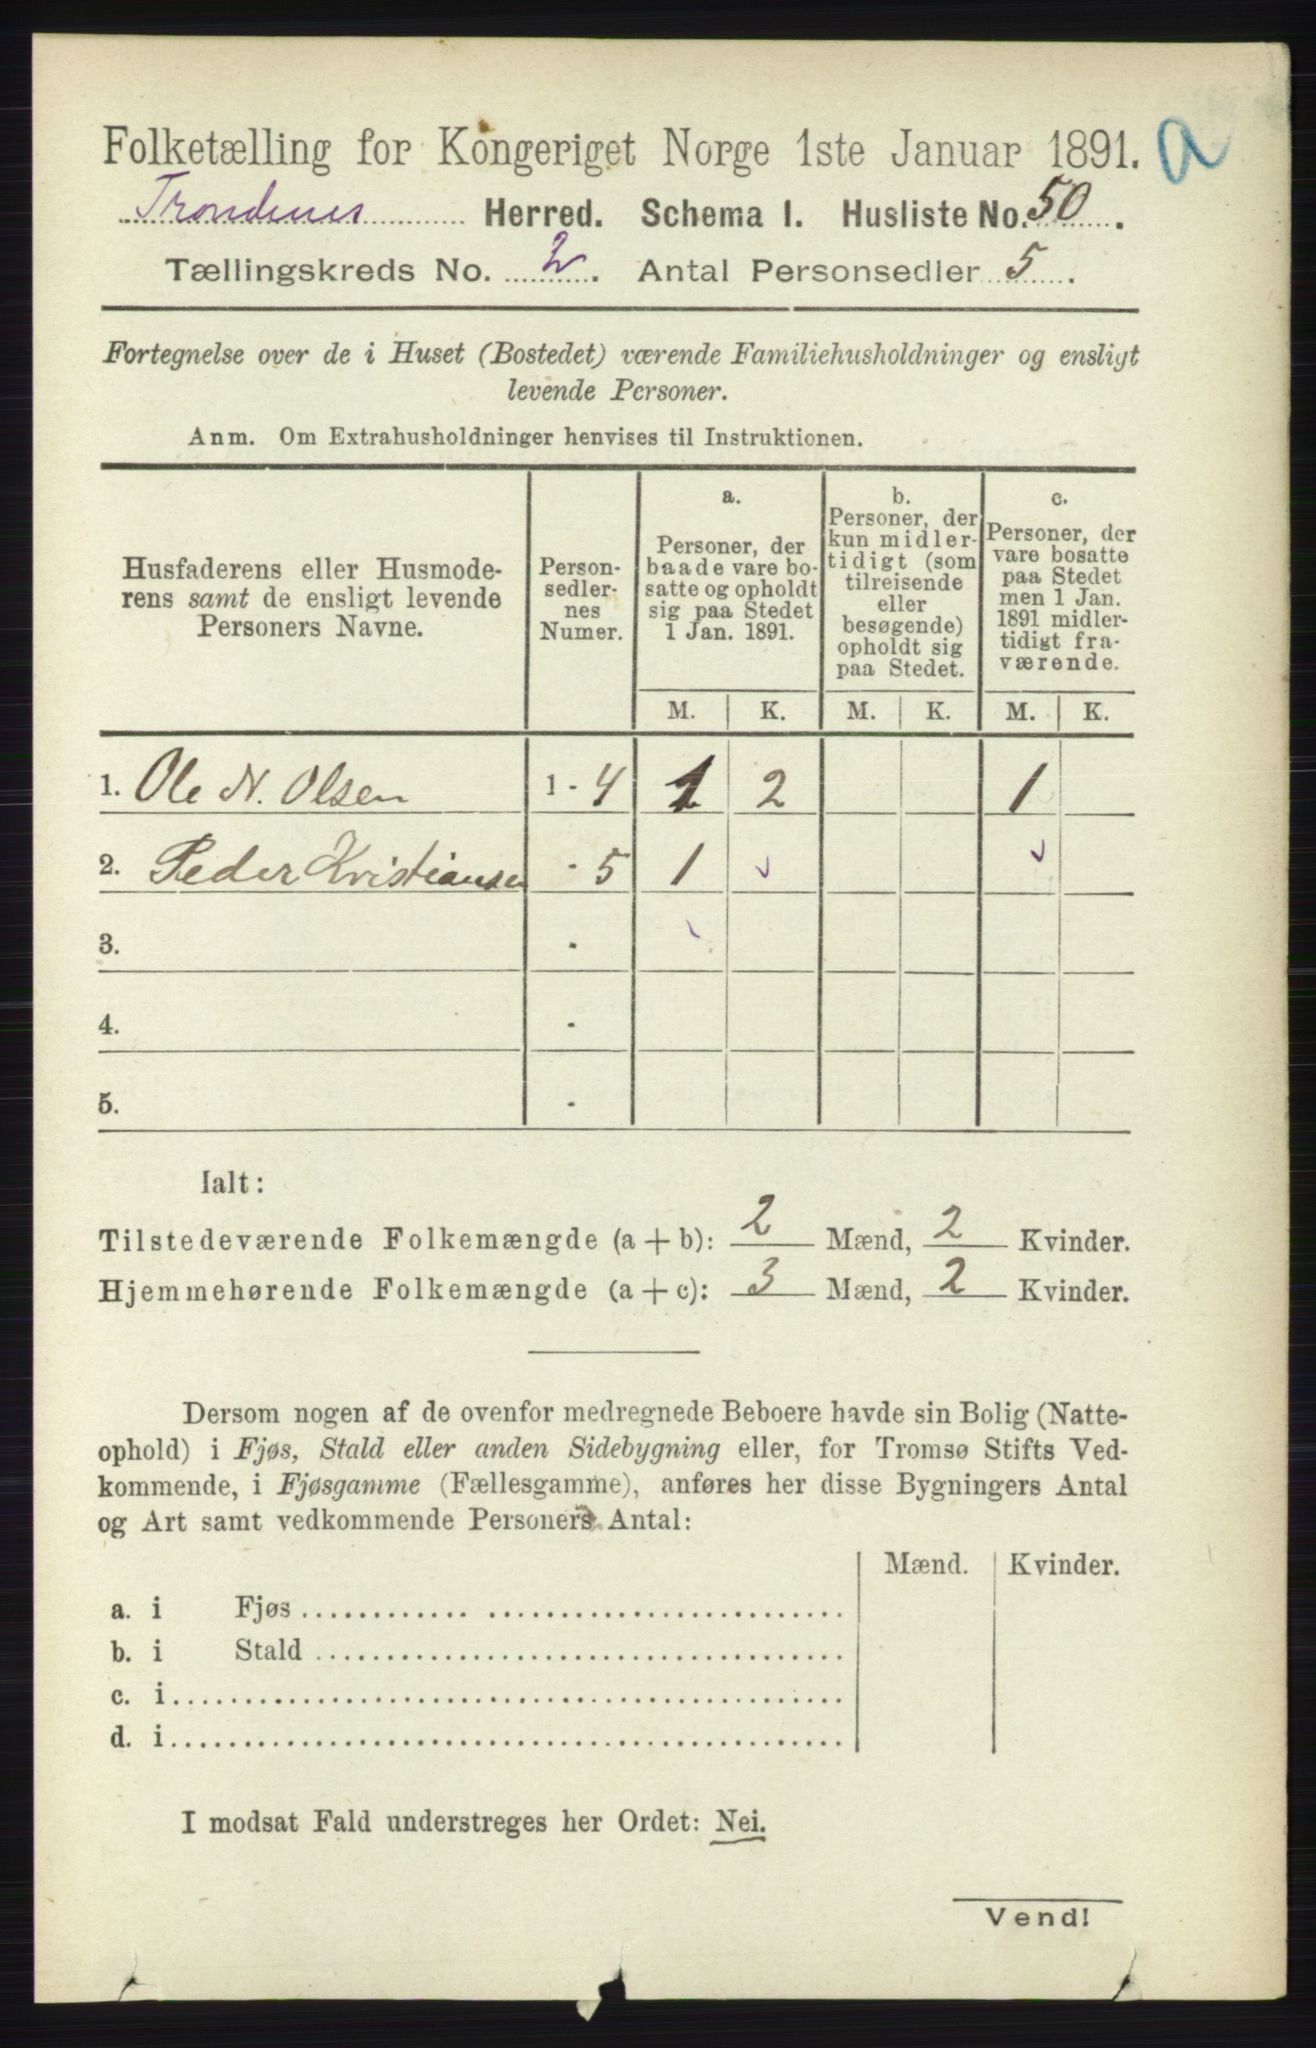 Folketælling for Kongeriget Norge 1ste Januar 1891. a
Trondenes Herred. Schema I. Husliste No. 50.
Tællingskreds No. 2. Antal Personsedler 5.
Fortegnelse over de i Huset (Bostedet) værende Familiehusholdninger og ensligt
levende Personer.
Anm. Om Extrahusholdninger henvises til Instruktionen.
Husfaderens eller Husmode-
rens samt de ensligt levende
Personers Navne.
Person-
sedler-
nes
Numer.
a.
Personer, der
baade vare bo-
satte og opholdt
sig paa Stedet
1 Jan. 1891.
b.
Personer, der
kun midler-
tidigt (som
tilreisende
eller
besøgende)
opholdt sig
paa Stedet.
c.
Personer, der
vare bosatte
paa Stedet
men 1 Jan.
1891 midler-
tidigt fra-
værende.
M. K. M. K. M. K.
1. Ole N. Olsen 1 - 4 1 2 1
2. Peder Kristiansen - 5 1
3. -
4. -
5. -
Ialt:
Tilstedeværende Folkemængde (a + b): 2 Mænd, 2 Kvinder.
Hjemmehørende Folkemængde (a + c): 3 Mænd, 2 Kvinder.
Dersom nogen af de ovenfor medregnede Beboere havde sin Bolig (Natte-
ophold) i Fjøs, Stald eller anden Sidebygning eller, for Tromsø Stifts Ved-
kommende, i Fjøsgamme (Fællesgamme), anføres her disse Bygningers Antal
og Art samt vedkommende Personers Antal:
Mænd. Kvinder.
a. i Fjøs
b. i Stald
c. i
d. i
I modsat Fald understreges her Ordet: Nei.
Vend!